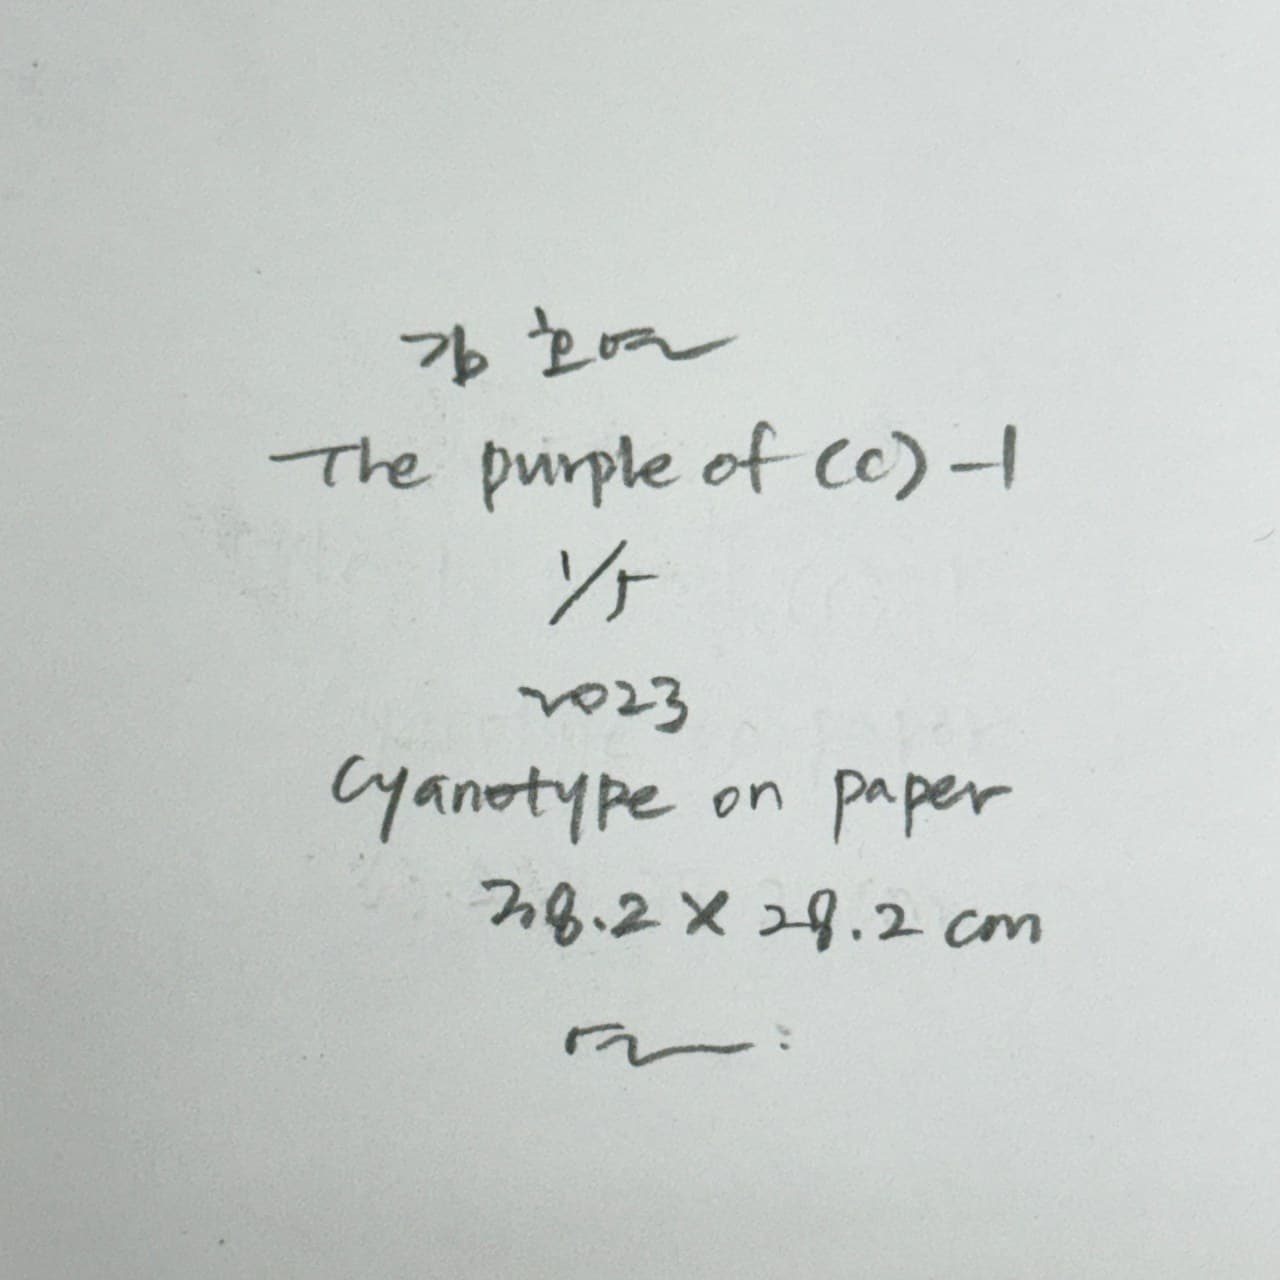 김 호연
The purple of (c) -1
1/5
2023
Cyanotype on paper
28.2 x 28.2 cm